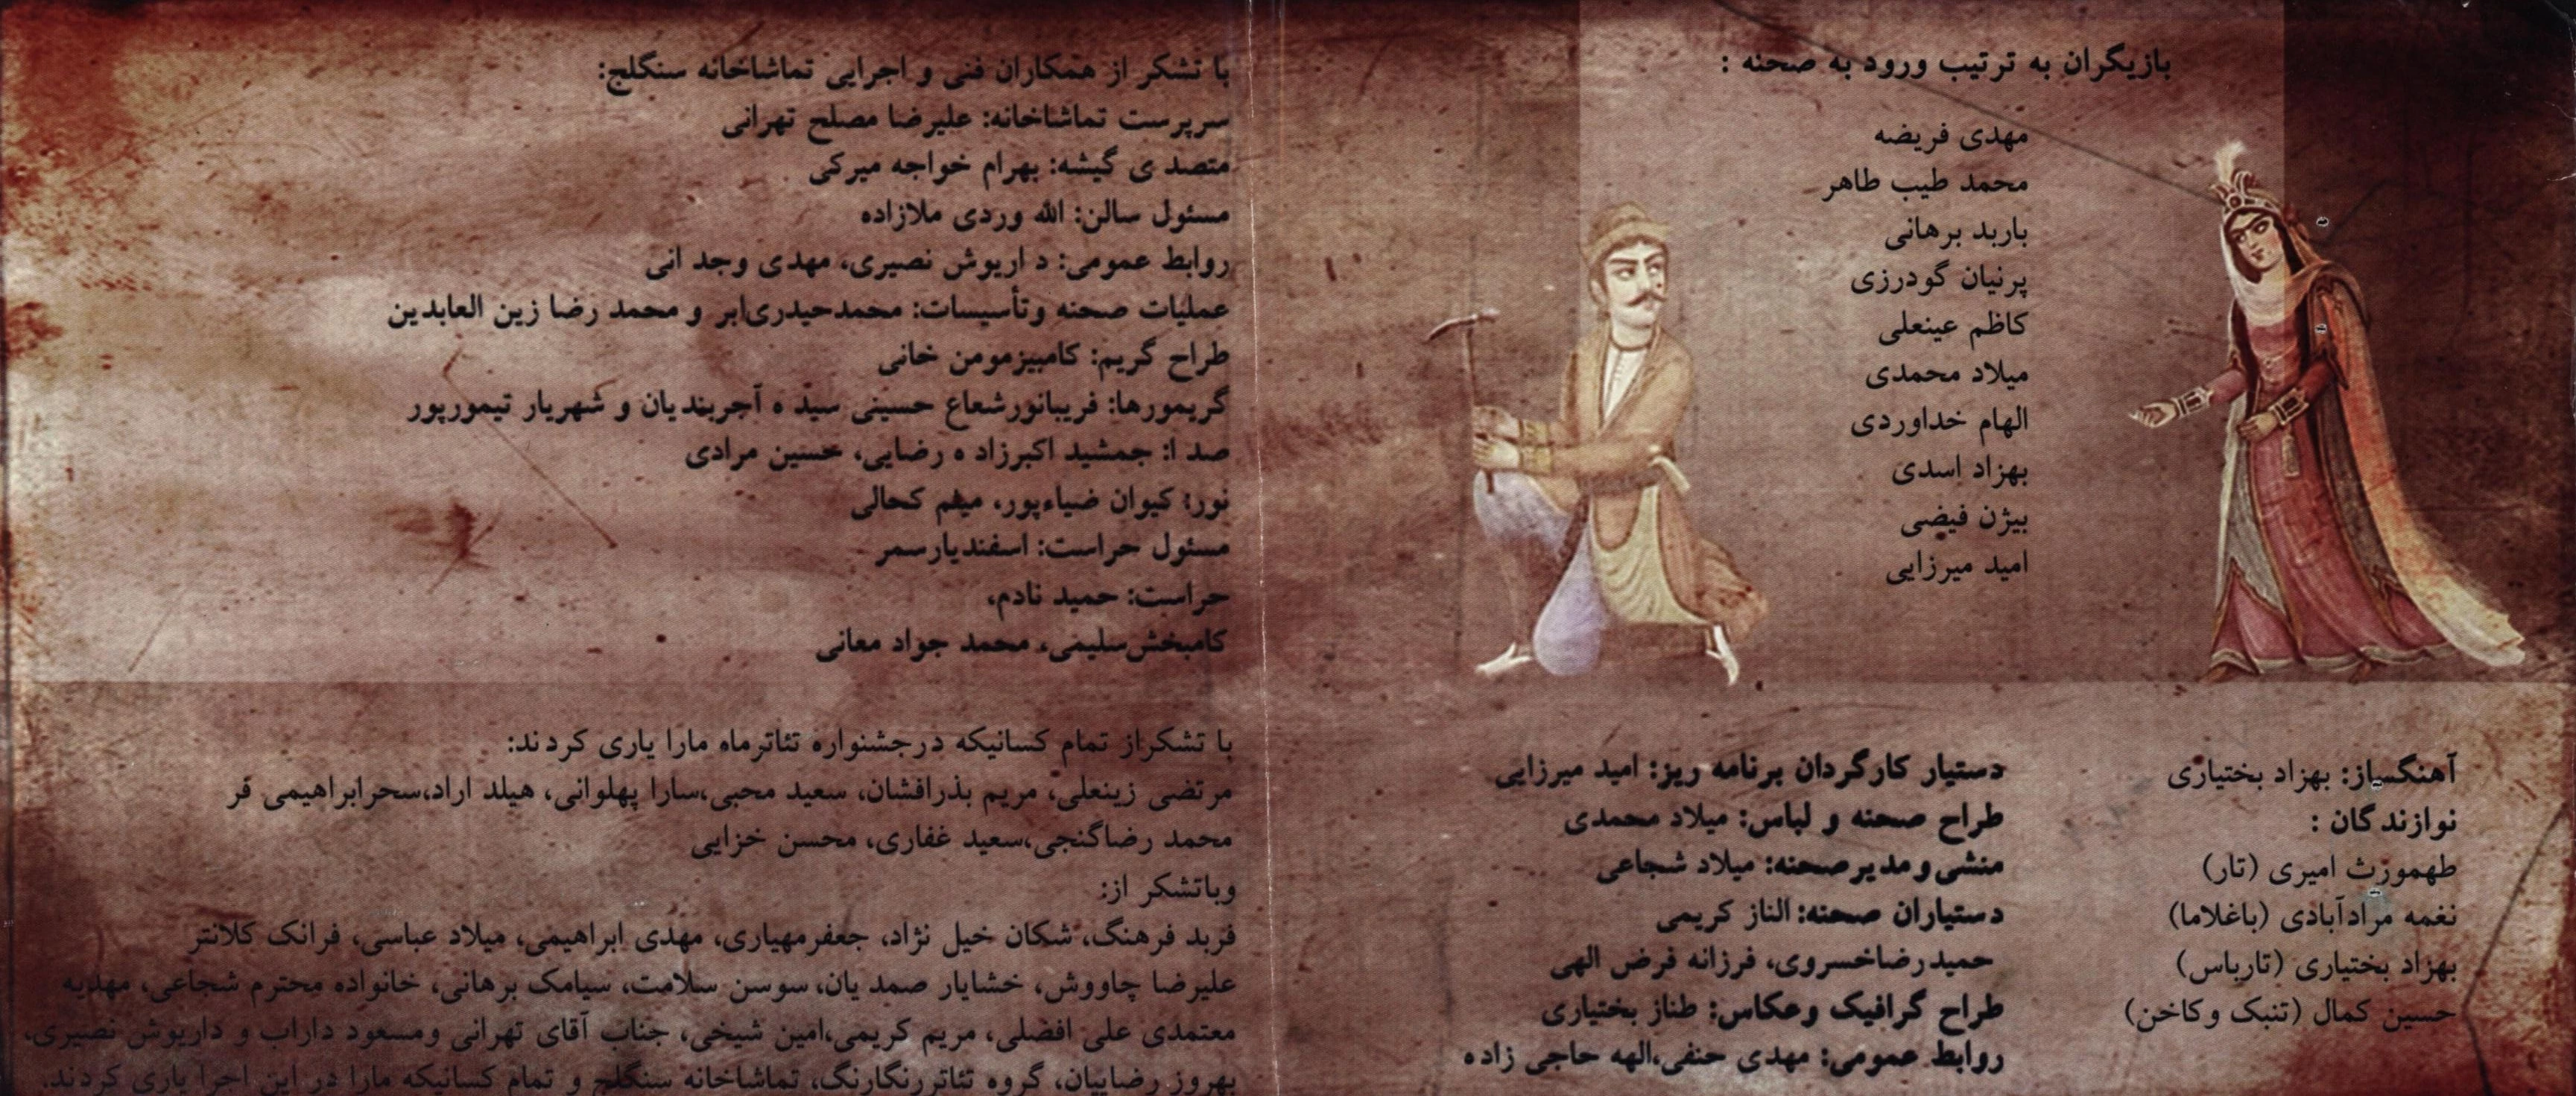 بازیگران به ترتیب ورود به صحنه :
مهدی فریضه
محمد طیب طاهر
باربد برهانی
پرنیان گودرزی
کاظم عینعلی
میلاد محمدی
الهام خداوردی
بهزاد اسدی
بیژن فیضی
امید میرزایی
آهنگساز: بهزاد بختیاری
نوازندگان :
طهمورث امیری (تار)
نغمه مرادآبادی (باغلاما)
بهزاد بختیاری (تارباس)
حسین کمال (تنبک وکاخن)
دستیار کارگردان برنامه ریز: امید میرزایی
طراح صحنه و لباس: میلاد محمدی
منشی و مدیرصحنه: میلاد شجاعی
دستیاران صحنه: الناز کریمی
حمیدرضاخسروی، فرزانه فرض الهی
طراح گرافیک وعکاس: طناز بختیاری
روابط عمومی: مهدی حنفی،الهه حاجی زاده
با تشکر از همکاران فنی و اجرایی تماشاخانه سنگلج:
سرپرست تماشاخانه: علیرضا مصلح تهرانی
متصدی گیشه: بهرام خواجه میرکی
مسئول سالن: الله وردی ملازاده
روابط عمومی: داریوش نصیری، مهدی وجدانی
عملیات صحنه وتأسیسات: محمدحیدری‌ابر و محمد رضا زین العابدین
طراح گریم: کامبیزمومن خانی
گریمورها: فریبانورشعاع حسینی سیده آجربندیان و شهریار تیمورپور
صدا: جمشید اکبرزاده رضایی، حسین مرادی
نور: کیوان ضیاءپور، میثم کحالی
مسئول حراست: اسفندیارسمر
حراست: حمید نادم،
کامبخش‌سلیمی، محمد جواد معانی
با تشکراز تمام کسانیکه درجشنواره تئاترماه مارا یاری کردند:
مرتضی زینعلی، مریم بذرافشان، سعید محبی،سارا پهلوانی، هیلد اراد،سحرابراهیمی فر
محمد رضاگنجی،سعید غفاری، محسن خزایی
وباتشکر از:
فربد فرهنگ، شکان خیل نژاد، جعفرمهیاری، مهدی ابراهیمی، میلاد عباسی، فرانک کلانتر
علیرضا چاووش، خشایار صمدیان، سوسن سلامت، سیامک برهانی، خانواده محترم شجاعی، مهدیه
معتمدی علی افضلی، مریم کریمی،امین شیخی، جناب آقای تهرانی ومسعود داراب و داریوش نصیری،
بهروز رضاییان، گروه تئاتررنگارنگ، تماشاخانه سنگلج و تمام کسانیکه مارا در این اجرا یاری کردند.